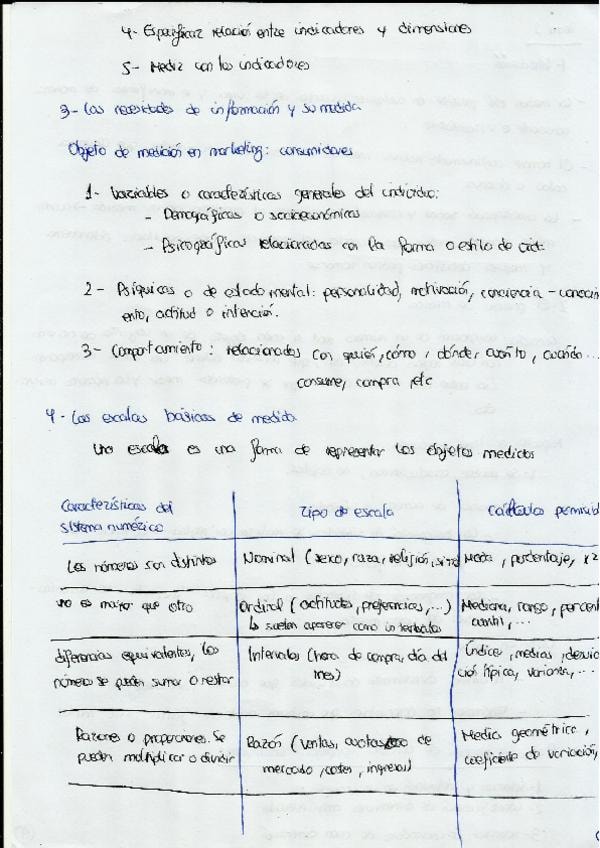 4- Especificar relación entre indicadores y dimensiones
5- Medir con los indicadores
3- Las necesidades de información y su medida
Objeto de medición en marketing: consumidores
1- Variables o características generales del individuo:
- Demográficas o socioeconómicas
- Psicográficas relacionadas con la forma o estilo de vida.
2- Psíquicas o de estado mental: personalidad, motivación, conciencia-conocimi
ento, actitud o intención.
3- Comportamiento: relacionados con quién, cómo, dónde, cuánto, cuándo...
consume, compra, etc
4- Las escalas básicas de medida
Una escala es una forma de representar los objetos medidos
Características del sistema numérico
Tipo de escala
Cálculos permisibl
Los números son distintos
Nominal (sexo, raza, religión,
Moda, porcentaje, x2
uno es mayor que otro
Ordinal (actitudes, preferencias,...)
↳ suelen aparecer como intervalos
Mediana, rango, percent
diferencias equivalentes, los
números se pueden sumar o restar
Intervalos (hora de compra, día del
mes)
Índices, medias, desvia
ción típica, varianza,...
Razones o proporciones. Se
pueden multiplicar o dividir
Razón (ventas, cuotas de
mercado, costes, ingresos)
Media geométrica,
coeficiente de variación,